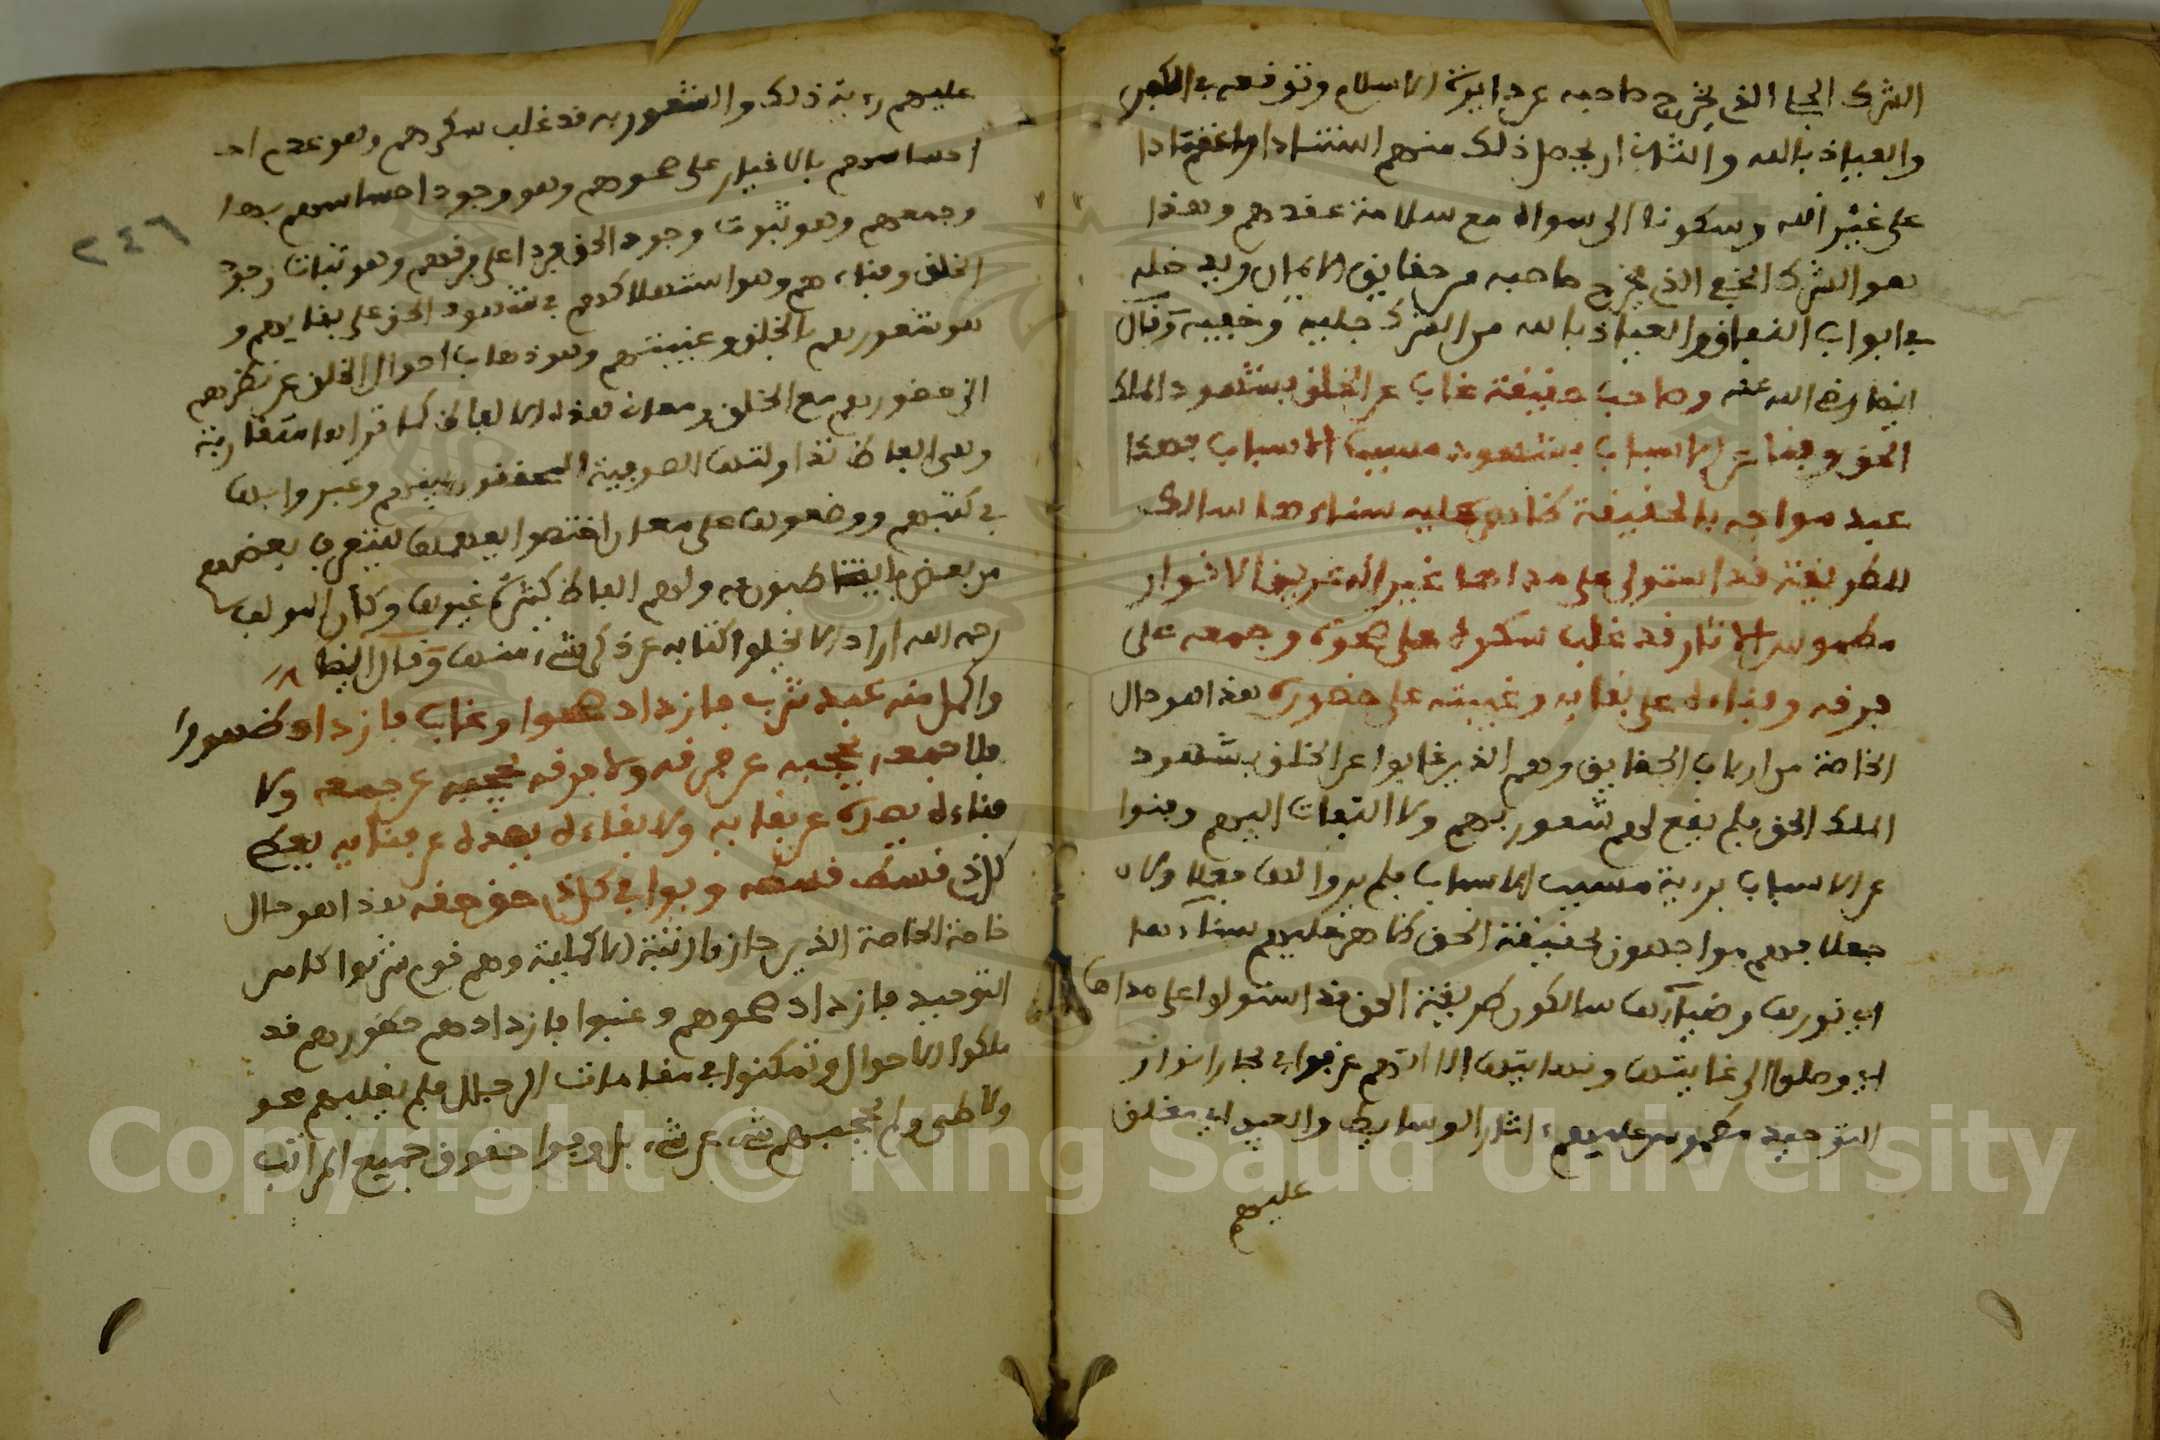 الشرك الجلي الذي يخرج صاحبه عن دايرة الاسلام وتوقعه في الكفر
والعياذ بالله والثاني ان يحصل ذلك منهم استنادا واعتمادا
على غير الله وسكونا الى سواه مع سلامة عقدهم وهذا
هو الشرك الخفي الذي يخرج صاحبه من حقايق الايمان ويدخله
في ابواب النفاق والعياذ بالله من الشرك جليه وخفيه وقال
ايضا رضي الله عنه وصاحب حقيقة غاب عن الخلق بشهود الملك
الحق وفنا عن الاسباب بشهود مسبب الاسباب فهذا
عبد مواجه بالحقيقة ظاهر عليه سناءها سالك
للطريقة قد استولى على مداها غير انه غريق الانوار
مطموس الاثار قد غلب سكره على صحوه وجمعه على
فرقه وفناءه على بقايه وغيبته على حضوره هذا هو حال
الخاصة من ارباب الحقايق وهم الذين غابوا عن الخلق بشهود
الملك الحق فلم يقع لهم شعور بهم ولا التفات اليهم وفنوا
عن الاسباب برءية مسبب الاسباب فلم يروا لها فعلا ولا
جعلا فهم مواجهون لحقيقة الحق ظاهر عليهم سناءها
اي نورها وضياءها سالكون طريقة الحق قد استولوا على مداها
اي وصلوا الى غايتها ونهايتها الا انهم غرقوا في بحار انوار
التوحيد مطموس عليهم ءاثار الوسايط والعبيد اي مغلق
عليهم
عليهم رءية ذلك والشعور به قد غلب سكرهم وهو عدم اح
احساسهم بالاغيار على صحوهم وهو وجود احساسهم بها
وجمعهم وهو ثبوت وجود الحق فردا على فرقهم وهو ثبات وجود
الخلق وفناءهم وهو استهلاكهم في شهود الحق على بقايهم و
هو شعورهم بالخلق وغيبتهم وهو ذهاب احوال الخلق عن نظرهم
الى حضورهم مع الخلق ومعاني هذه الالفاظ كما تراها متقاربة
وهي الفاظ تداولتها الصوفية المحققون بينهم وعبروا بها
في كتبهم ووضعوها على معان اختصوا بفهمها ليتعرف بعضهم
من بعض ما يتخاطبون به ولهم الفاظ كثيرة غيرها وكأن المولف
رحمه الله اراد الا يخلوا كتابه عن ذكر شيء منها وقال ايضا
واكمل منه عبد شرب فازداد صحوا وغاب فازداد حضورا
فلا جمعه يحجبه عن فرقه ولا فرقه يحجبه عن جمعه ولا
فناءه يصده عن بقايه ولا بقاءه يصده عن فنايه يعطي
كل ذي قسط قسطه ويوافي كل ذي حق حقه هذا هو حال
خاصة الخاصة الذين حازوا رتبة الاكملية وهم قوم شربوا كاس
التوحيد فازداد صحوهم وغيبوا فازدادهم حضورهم قد
ملكوا الاحوال وتمكنوا في مقامات الرجال فلم يغلبهم محو
ولا طمى ولم يحجبهم شيء عن شيء بل وفوا حقوق جميع المراتب
٢٤٦
Copyright © King Saud University